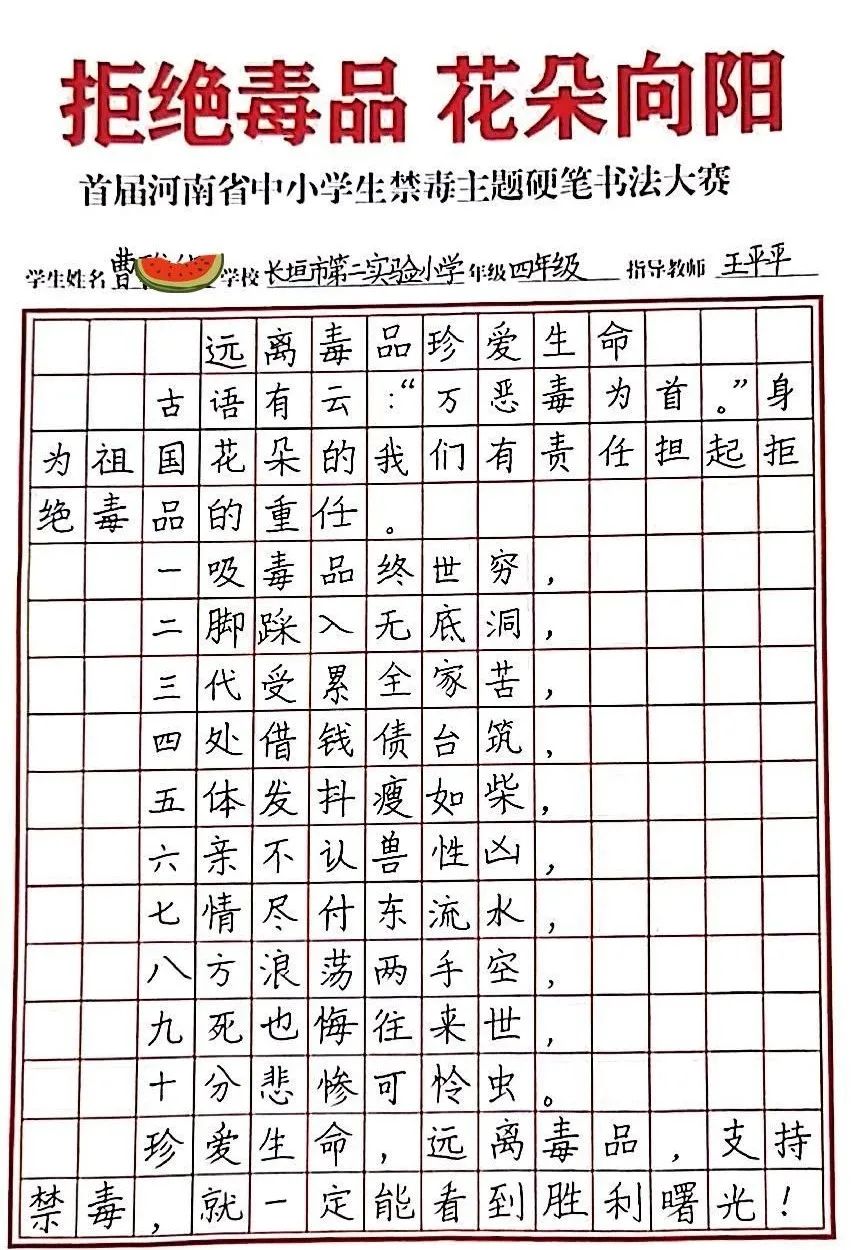 拒绝毒品 花朵向阳
首届河南省中小学生禁毒主题硬笔书法大赛
学生姓名 曹 学校 长垣市第二实验小学 年级 四年级 指导教师 王平平
远离毒品珍爱生命
古语有云:“万恶毒为首。”身
为祖国花朵的我们有责任担起拒
绝毒品的重任。
一吸毒品终世穷,
二脚踩入无底洞,
三代受累全家苦,
四处借钱债台筑,
五体发抖瘦如柴,
六亲不认兽性凶,
七情尽付东流水,
八方浪荡两手空,
九死也悔往来世,
十分悲惨可怜虫。
珍爱生命,远离毒品,支持
禁毒,就一定能看到胜利曙光!